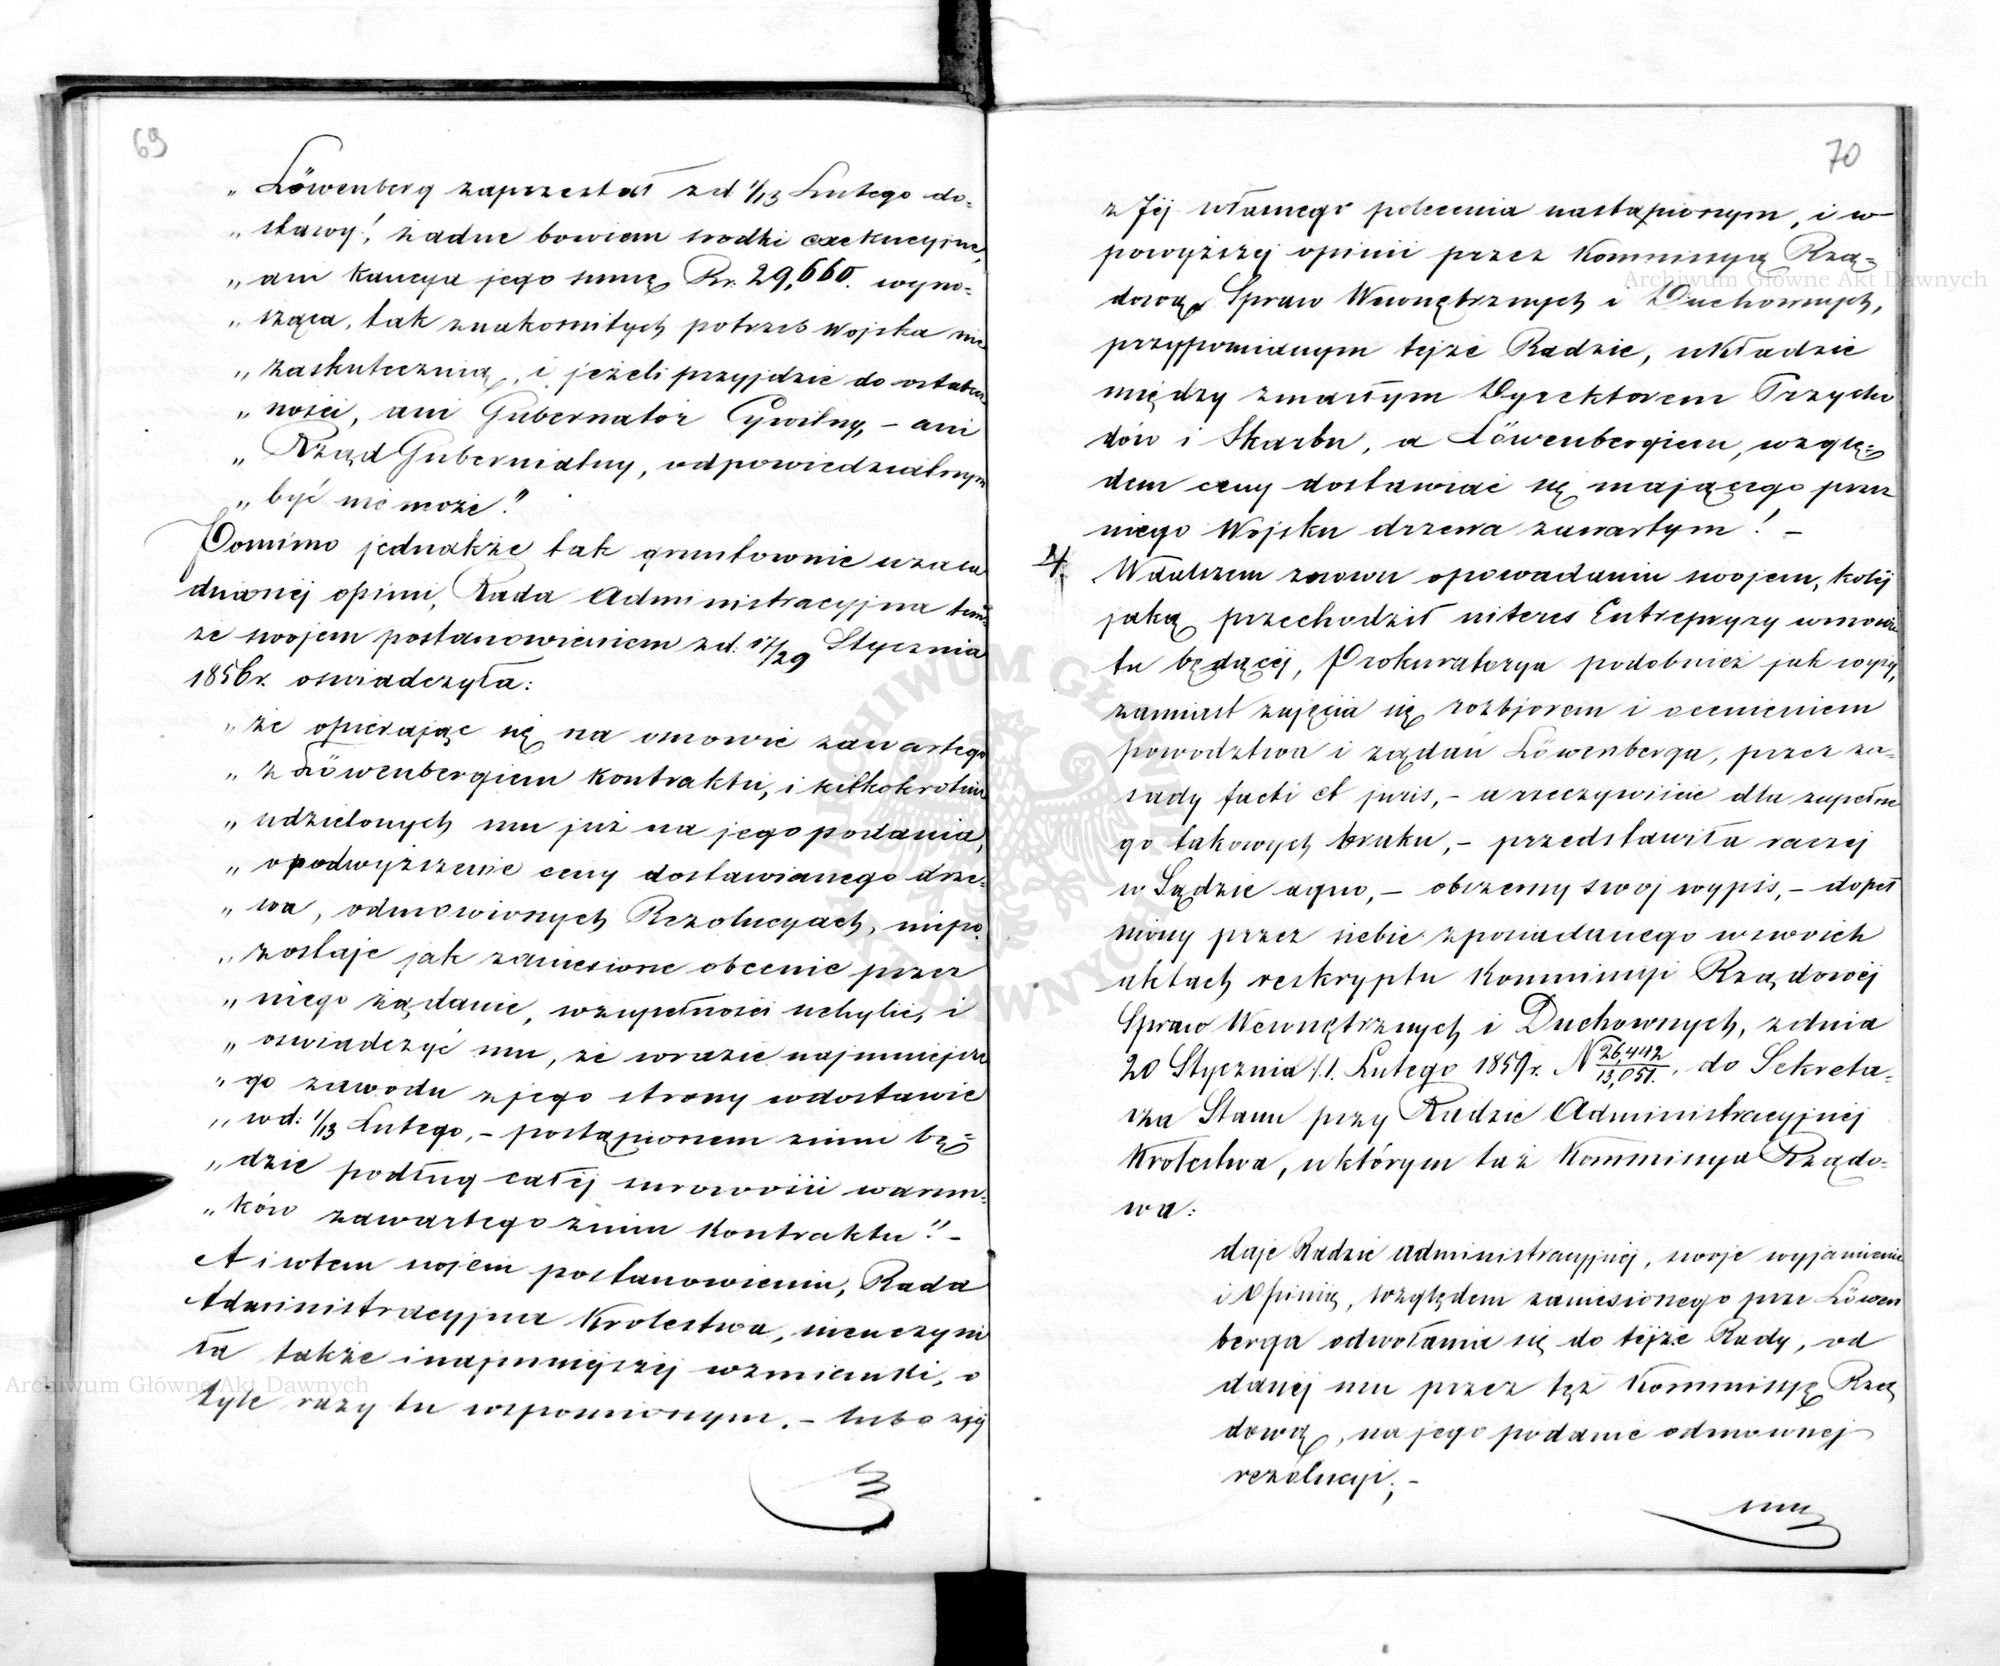 69
„ Löwenberg zaprzestał zd 1/13 Lutego do=
„ stawy!, żadne bowiem srodki exekucyjne,
„ ani kaucya jego summę Rr. 29,660. wyno=
„ sząca, tak znakomitych potrzeb Wojska nie
„ zaskutecznią, i jeżeli przyjdzie do ostatecz=
„ ności, ani Gubernator Cywilny, – ani
„ Rząd Gubernialny, odpowiedzialnym
„ być nie może."
Pomimo jednakże tak gruntownie uzasa
dnionej opinii, Rada Administracyjna tem=
że swojem postanowieniem zd. 17/29 Stycznia
1856 r. oswiadczyła:
„ że opierając się na osnowie zawartego
„ z Löwenbergiem Kontraktu, i kilkokrotnie
„ udzielonych mu już na jego podania,
„ o podwyższenie ceny dostawianego drze=
„ wa, odmownych Rezolucyach, niepo
„ zostaje jak zaniesione obecnie przez
„ niego żądanie, wzupełności uchylić, i
„ oswiadczyć mu, że wrazie najmniejsze
„ go zawodu zjego strony wdostawie
„ wd: 1/13 Lutego, – postąpionem znim bę=
„ dzie podług całej surowości warun=
„ ków zawartego znim Kontraktu." –
A i wtem swojem postanowieniu, Rada
Administracyjna Krolestwa, nieuczyni
ła także i najmniejszej wzmianki, o
tyle razy tu wspomnionym, – lubo zjej
70
z Jej własnego polecenia nastąpionym, i w
powyższej opinii przez Kommissyą Rzą=
dową Spraw Wewnętrznych i Duchownych,
przypomianym tejże Radzie, układzie
między zmarłym Dyrektorem Przycho
dów i Skarbu, a Löwenbergiem, wzglę=
dem ceny dostawiać się mającego przez
niego Wojsku drzewa zawartym! –
4. Wdalszem znowu opowadaniu swojem, kolej
jaką przechodził interes Entrepryzy wmowie
tu będącej, Prokuratorya podobnież jak wyżej,
zamiast zajęcia się rozbjorem i ocenieniem
powodztwa i żądań Löwenberga, przez za=
sady facti et juris, – a rzeczywiście dla zupełne
go takowych braku, – przedstawiła raczej
w Sądzie a quo, – obszerny swoj wypis, – dopeł
niony przez siebie zposiadanego wswoich
aktach reskryptu Kommissyi Rządowej
Spraw Wewnętrznych i Duchownych, zdnia
20 Stycznia /1. Lutego 1859 r. N 26,442/13,051., do Sekreta=
rza Stanu przy Radzie Administracyjnej
Krolestwa, wktórym taż Kommissya Rządo=
wa:
daje Radzie Administracyjnej, swoje wyjasnienie
i Opinię, względem zaniesionego prze Löwen
berga odwołania się do tejże Rady, od
danej mu przez tęż Kommissyę Rzą
dową, na jego podanie odmownej
rezolucyi; –